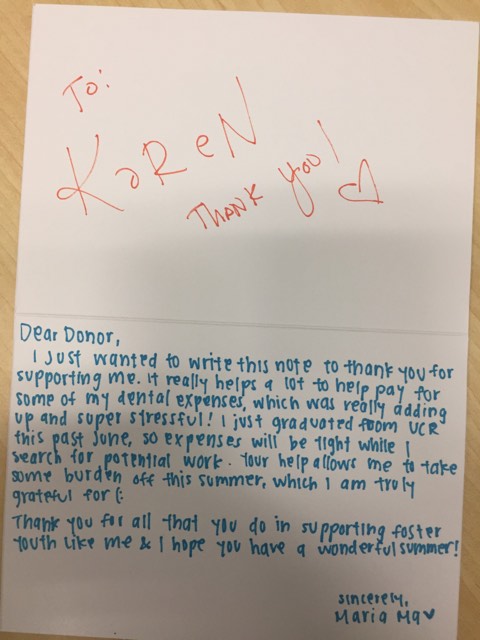 To:
KaReN
THANK you! ♡
Dear Donor,
I just wanted to write this note to thank you for
supporting me. It really helps a lot to help pay for
some of my dental expenses, which was really adding
up and super stressful! I just graduated from UCR
this past June, so expenses will be tight while I
search for potential work. Your help allows me to take
some burden off this summer, which I am truly
grateful for (:
Thank you for all that you do in supporting foster
youth like me & I hope you have a wonderful summer!
Sincerely,
Maria Ma♥